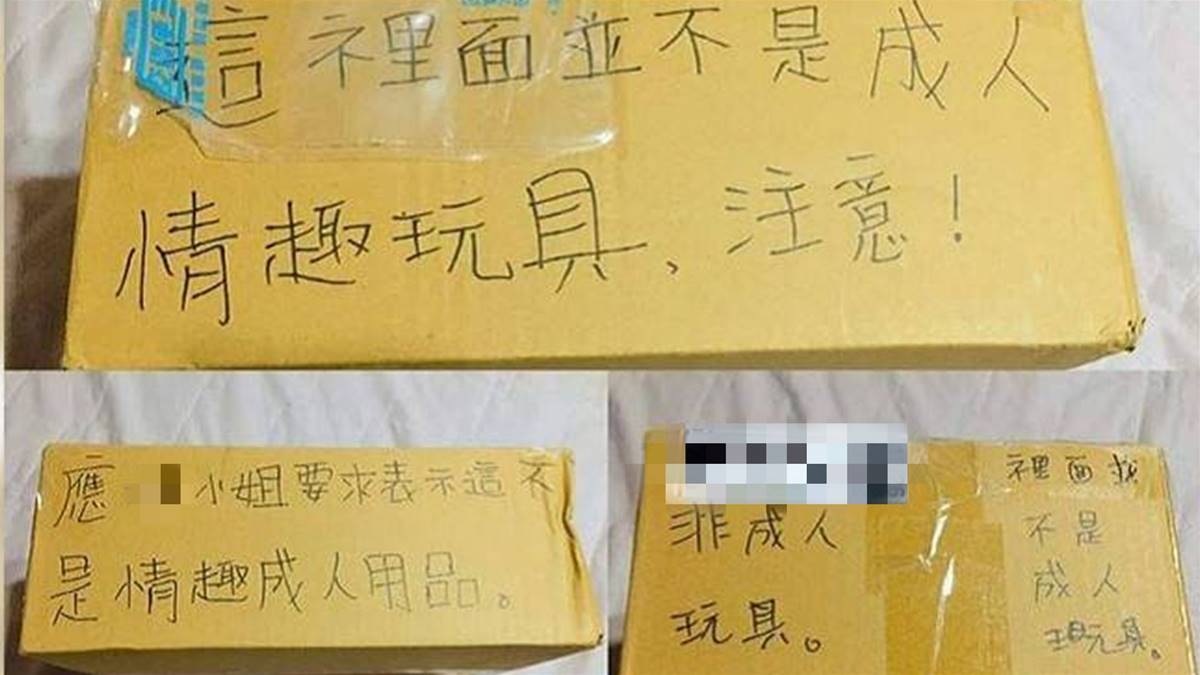 這裡面並不是成人
情趣玩具、注意!
應 小姐要求表示這不
是情趣成人用品。
非成人
玩具。
裡面
不是
成人
玩具。